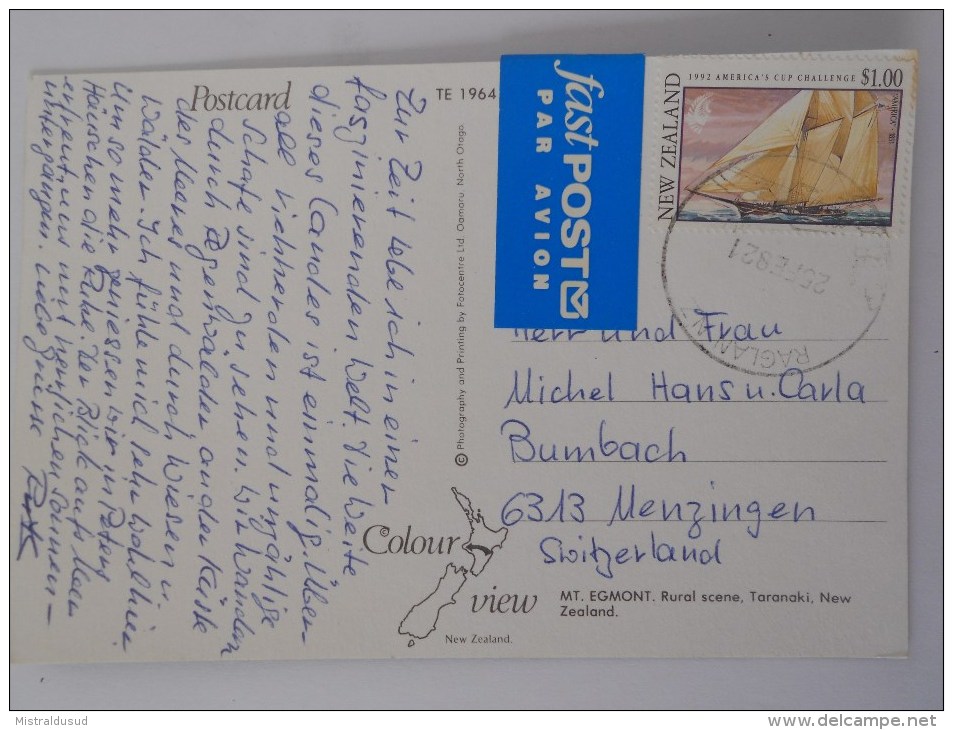 Postcard
TE 1964
fastPOST
PAR AVION
1992 AMERICA'S CUP CHALLENGE $1.00
NEW ZEALAND
RAGLAN
Zur Zeit lebe ich in einer
faszinierenden Welt. Die Weite
dieses Landes ist einmalig. Über-
all Rinder und unzählige
Schafe sind zu sehen. Wir wandern
durch Regenwälder an der Küste
des Meeres und durch Wiesen u.
Wälder. Ich fühle mich sehr wohl hier.
Um so mehr geniessen wir in
Häuschen die Ruhe. Der Blick aufs Meer
erfreut uns mit herrlichen Sonnen-
untergängen. Liebe Grüsse
© Photography and Printing by Fotocentre Ltd. Oamaru. North Otago.
Herr und Frau
Michel Hans u. Carla
Bumbach
6313 Menzingen
Switzerland
Colour
view
New Zealand.
MT. EGMONT. Rural scene, Taranaki, New
Zealand.
Mistraldusud
delcampe.net